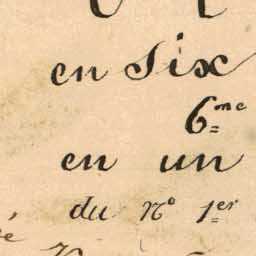 en Six
6me
en un
du No 1er